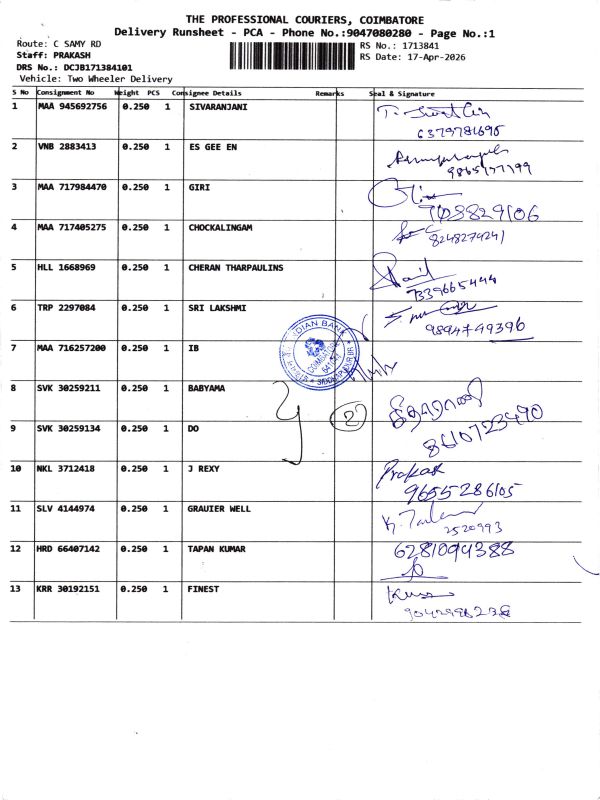 THE PROFESSIONAL COURIERS, COIMBATORE
Delivery Runsheet - PCA - Phone No.:9047080280 - Page No.:1
Route: C SAMY RD
RS No.: 1713841
Staff: PRAKASH
RS Date: 17-Apr-2026
DRS No.: DCJB171384101
Vehicle: Two Wheeler Delivery
S No Consignment No Weight PCS Consignee Details Remarks Seal & Signature
1 MAA 945692756 0.250 1 SIVARANJANI
6379781695
2 VNB 2883413 0.250 1 ES GEE EN
3 MAA 717984470 0.250 1 GIRI
4 MAA 717405275 0.250 1 CHOCKALINGAM
8248279241
5 HLL 1668969 0.250 1 CHERAN THARPAULINS
7339665444
6 TRP 2297084 0.250 1 SRI LAKSHMI
9894749396
7 MAA 716257200 0.250 1 IB
INDIAN BANK
COIMBATORE
8 SVK 30259211 0.250 1 BABYAMA
2
9 SVK 30259134 0.250 1 DO
8610723490
10 NKL 3712418 0.250 1 J REXY
Prakash
9655286105
11 SLV 4144974 0.250 1 GRAUIER WELL
2520993
12 HRD 66407142 0.250 1 TAPAN KUMAR
6281094388
13 KRR 30192151 0.250 1 FINEST
9042998238